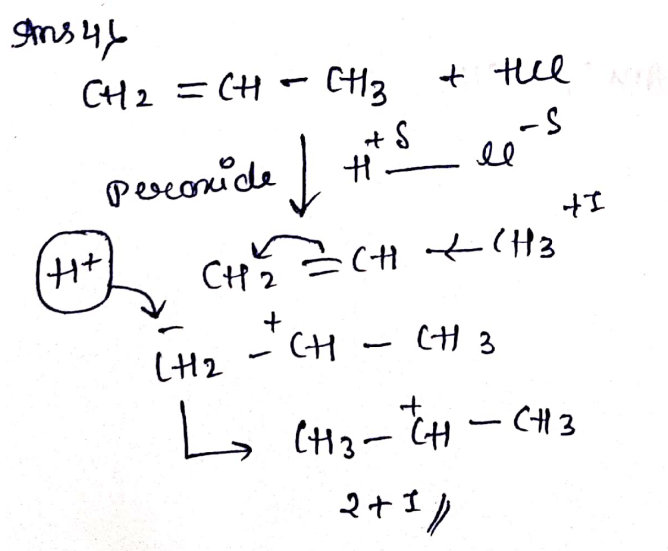 Ans 4)
CH2 = CH - CH3 + HCl
peroxide ↓ H+δ — Cl-δ
H+ CH2 = CH ← CH3 +I
CH2- - CH+ - CH3
↳ CH3 - CH+ - CH3
2+I //